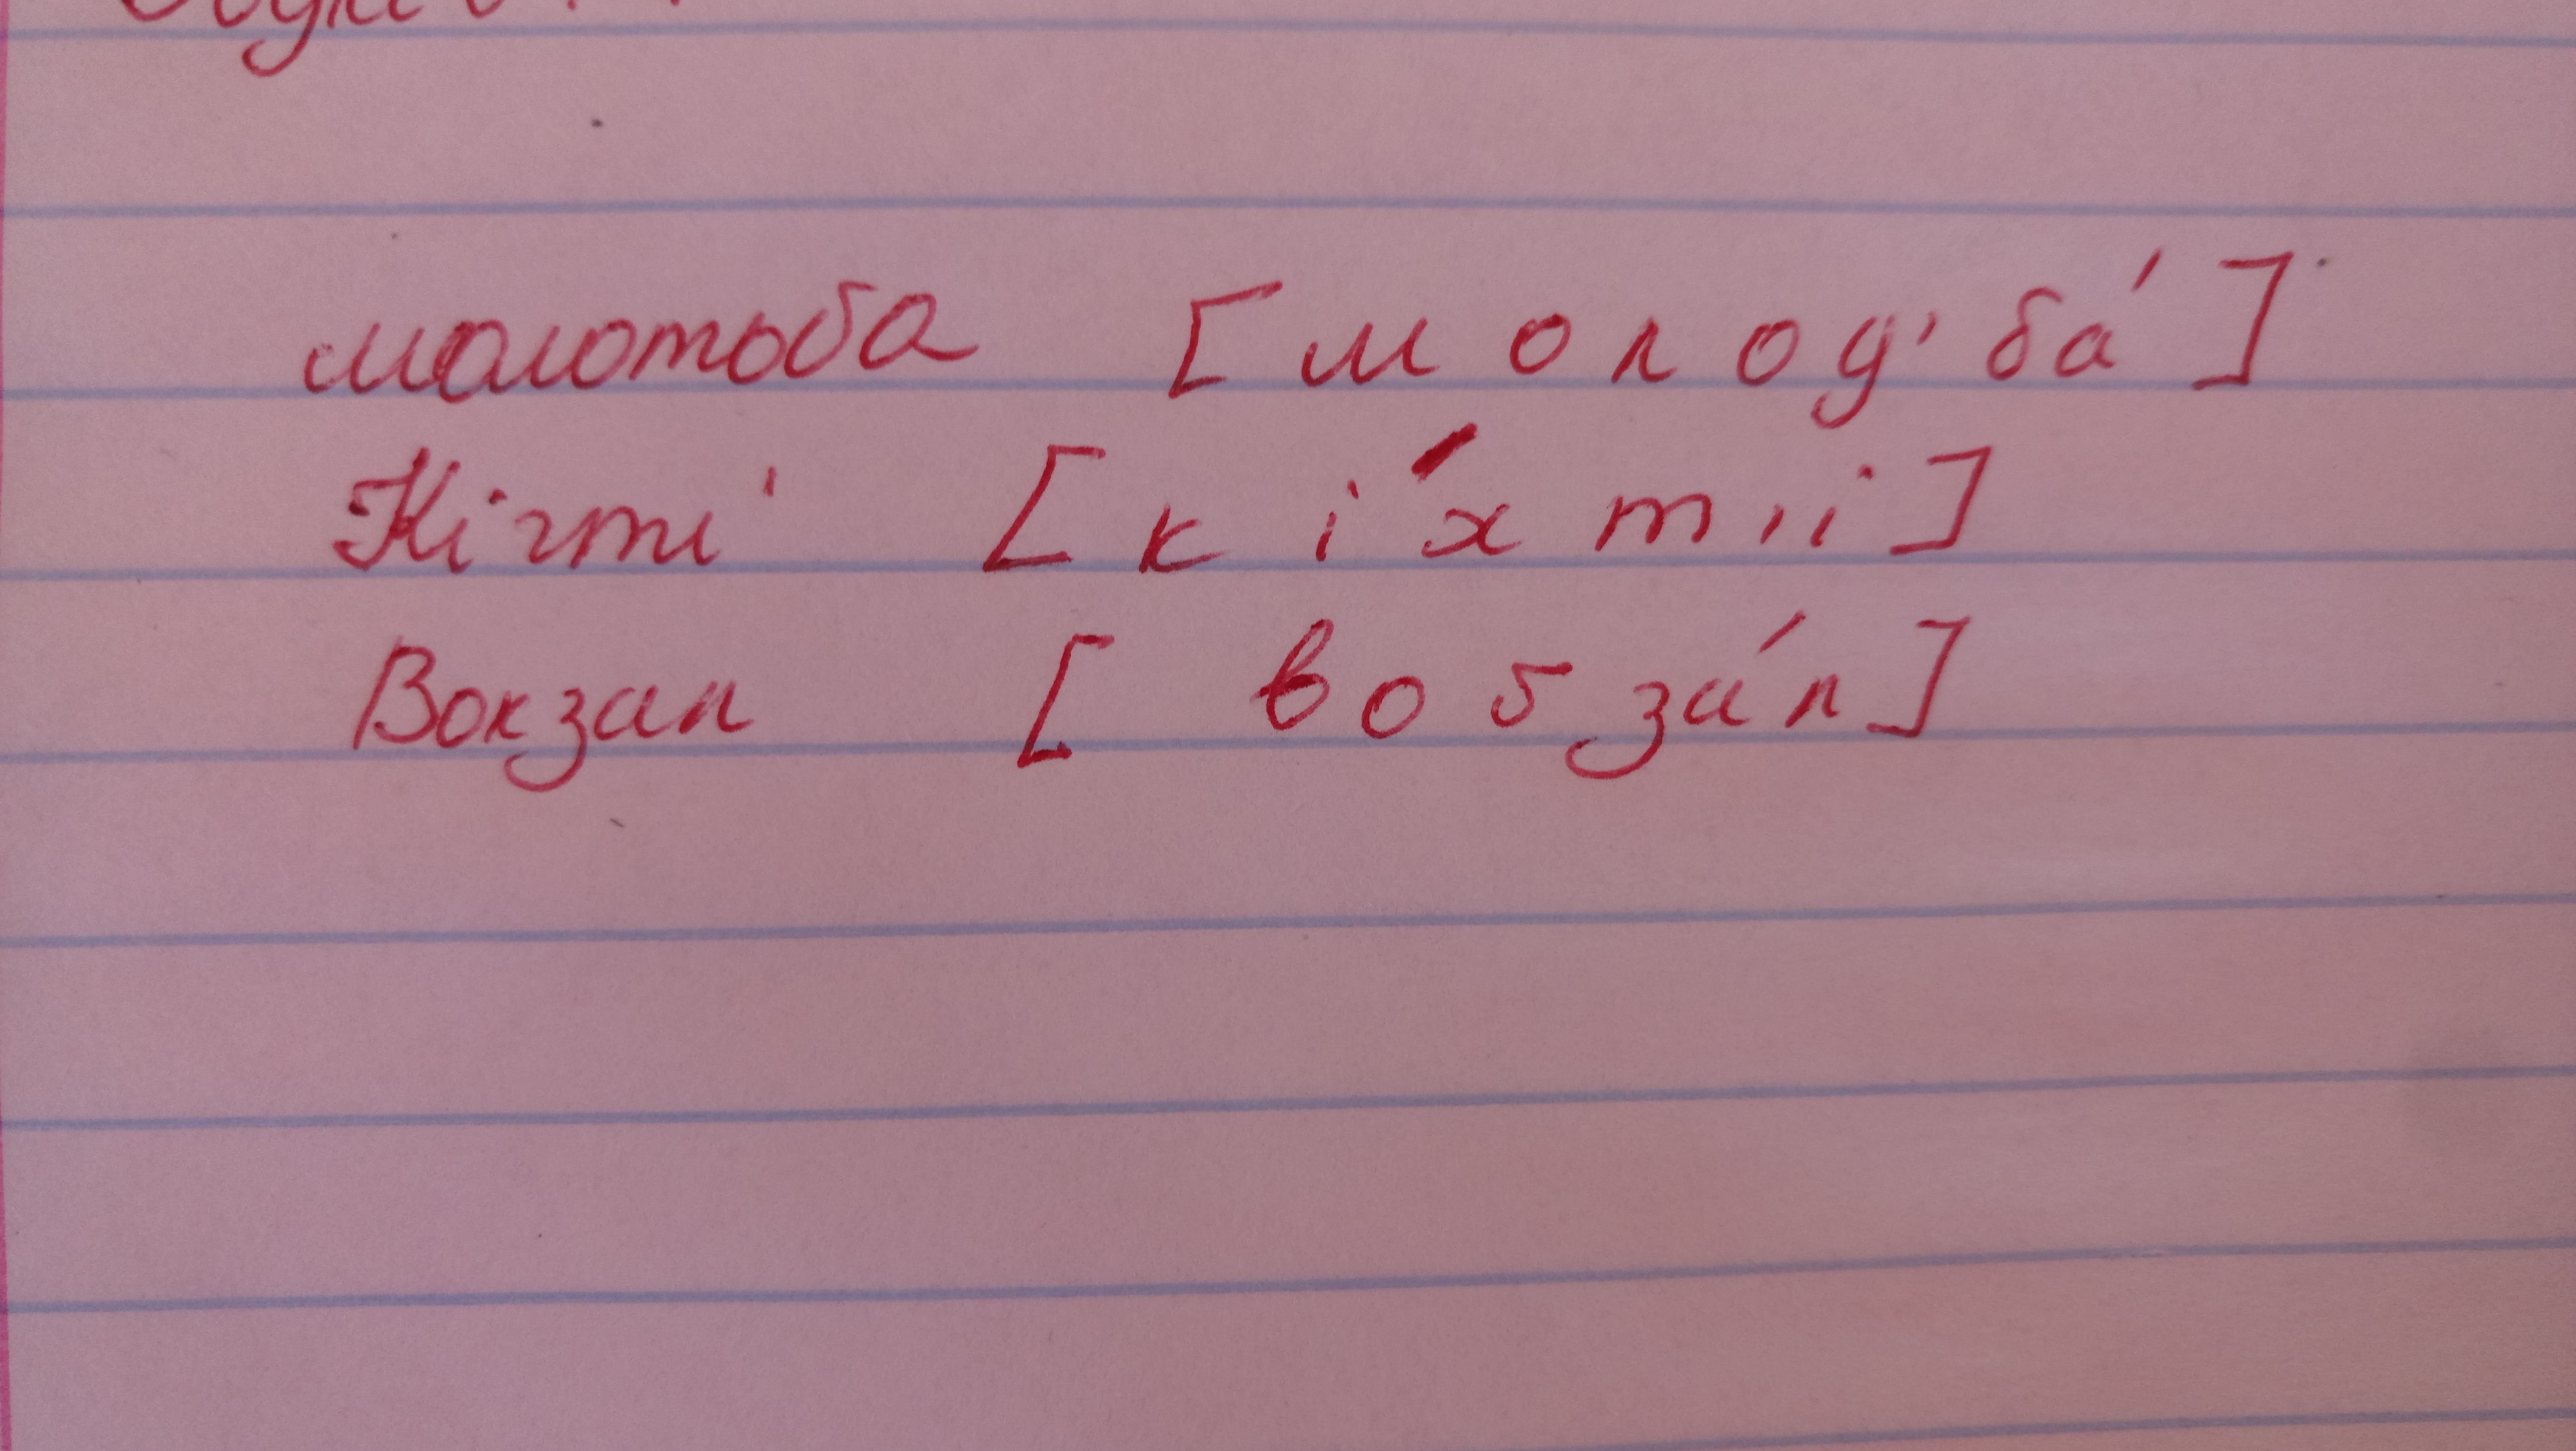 молотьба [м о л о д' б а́]
Кігті [к і́ х т ' і]
Вокзал [в о ґ з а́ л]